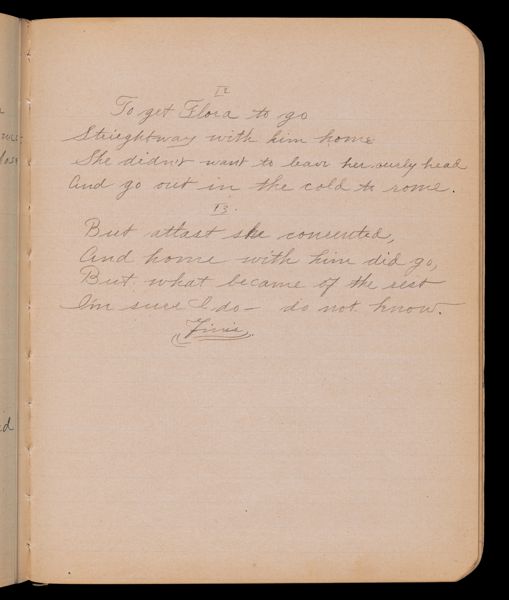 12
To get Flora to go
Strieghtway with him home
She didn't want to leav her curly head
And go out in the cold to rome.
13.
But atlast she concented,
And home with him did go,
But what became of the rest
Im sure I do - do not know.
Finis